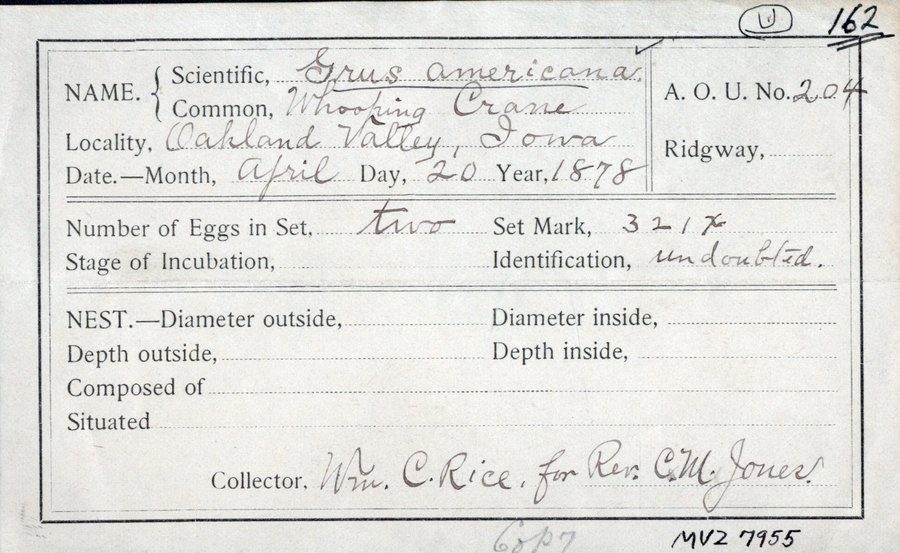 U
162
NAME. { Scientific, Grus americana
Common, Whooping Crane
A. O. U. No. 204
Locality, Oakland Valley, Iowa
Ridgway,
Date.—Month, April Day, 20 Year, 1878
Number of Eggs in Set, two Set Mark, 321x
Stage of Incubation, Identification, undoubted.
NEST.—Diameter outside, Diameter inside,
Depth outside, Depth inside,
Composed of
Situated
Collector. Wm. C. Rice, for Rev. C.M. Jones.
Copy
MVZ 7955